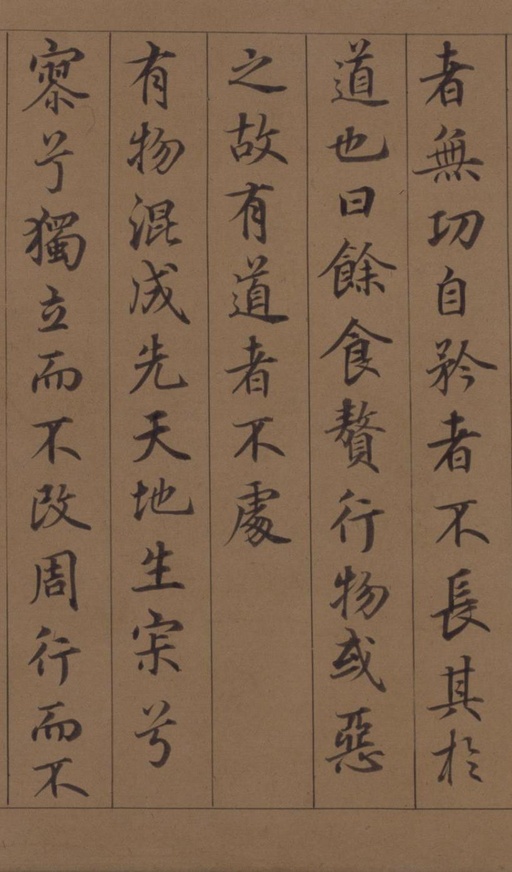 者無功自矜者不長其於
道也曰餘食贅行物或惡
之故有道者不處
有物混成先天地生宋兮
寥兮獨立而不改周行而不